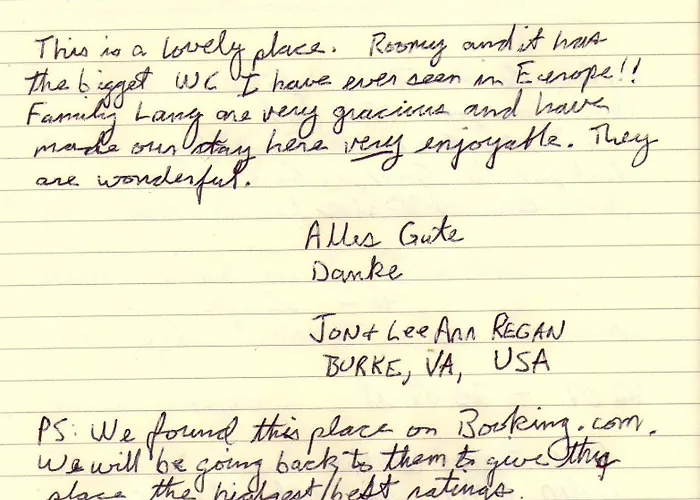 This is a lovely place. Roomy and it has
the biggest WC I have ever seen in Europe!!
Family Lang are very gracious and have
made our stay here very enjoyable. They
are wonderful.
Alles Gute
Danke
JON + LeeAnn REGAN
BURKE, VA, USA
PS: We found this place on Booking.com.
We will be going back to them to give this
place the highest/best ratings.